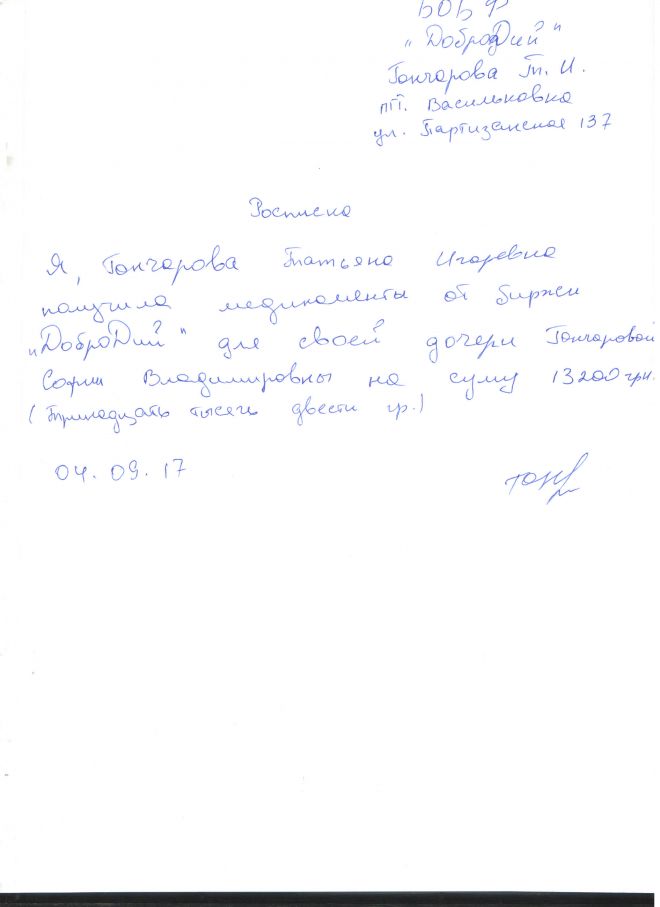 БОБФ
„ДоброДий"
Гончарова Т. И.
пгт. Васильковка
ул. Партизанская 137
Росписка
Я, Гончарова Татьяна Игоревна
получила медикаменты от биржи
„ДоброДий" для своей дочери Гончаровой
Софии Владимировны на суму 13200 грн.
(Тринадцать тысяч двести гр.)
04.09.17